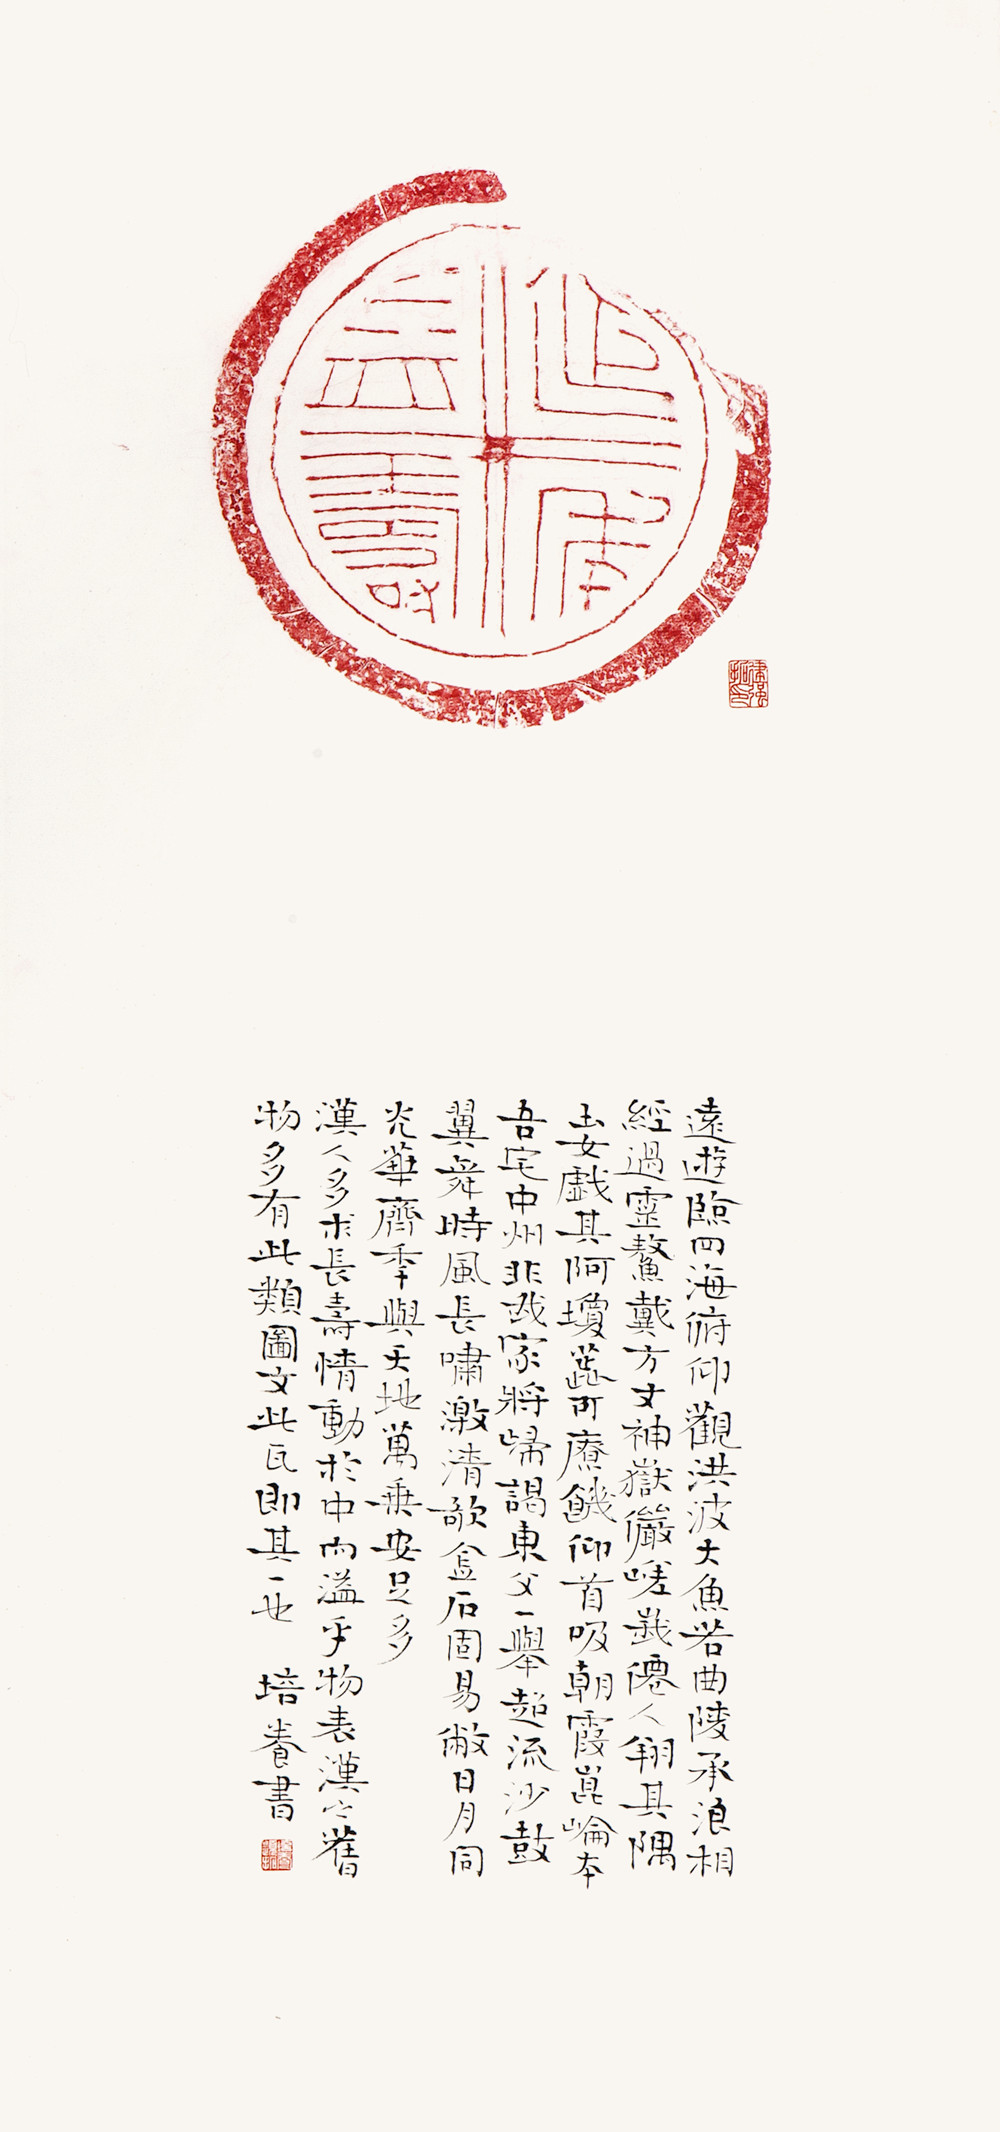 延年
益壽
遠遊臨四海俯仰觀洪波大魚若曲陵承浪相
經過靈鰲戴方丈神嶽儼嵯峩僊人翔其隅
玉女戲其阿瓊蕊可療饑仰首吸朝霞崑崙本
吾宅中州非我家將歸謁東父一舉超流沙鼓
翼舞時風長嘯激清歌金石固易敝日月同
光華齊年與天地萬乘安足多
漢人多求長壽情動於中而溢乎物表漢之舊
物多有此類圖文此瓦即其一也 培養書